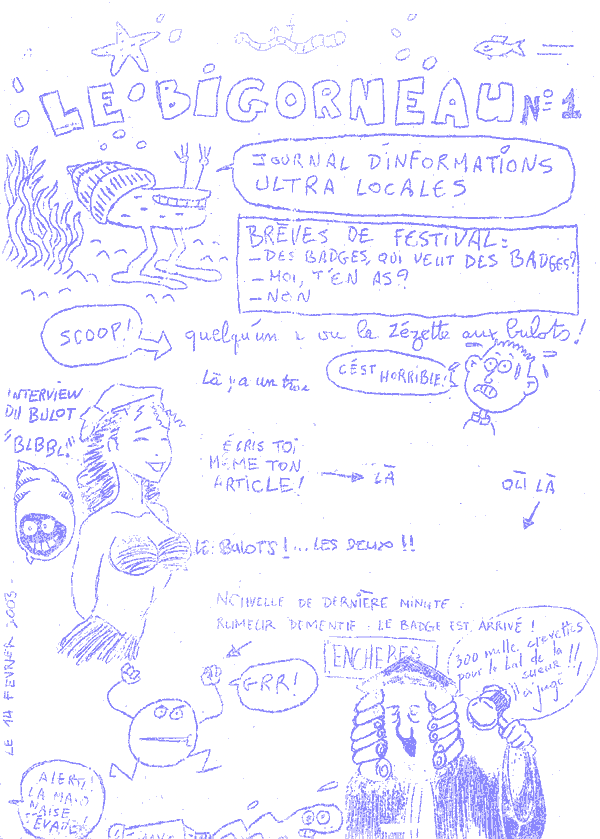 LE BIGORNEAU N° 1
JOURNAL D'INFORMATIONS
ULTRA LOCALES
BRÊVES DE FESTIVAL:
- DES BADGES, QUI VEUT DES BADGES?
- MOI, T'EN AS?
- NON
SCOOP!
quelqu'un a vu la zézette aux bulots!
Là y'a un
C'EST HORRIBLE!
INTERVIEW
DU BULOT
"BLBBL!"
ÉCRIS TOI
MÊME TON
ARTICLE!
LÀ
OÙ LÀ
LE BULOTS! ...LES DEUX!!
NOUVELLE DE DERNIÈRE MINUTE:
RUMEUR DEMENTIE: LE BADGE EST ARRIVÉ!
ENCHERES
300 mille crevettes
pour le bal de la
sueur!!
GRR!
LE 14 FEVRIER 2003 -
ALERTE!
LA MAYO
NAISE
S'ÉVADE!